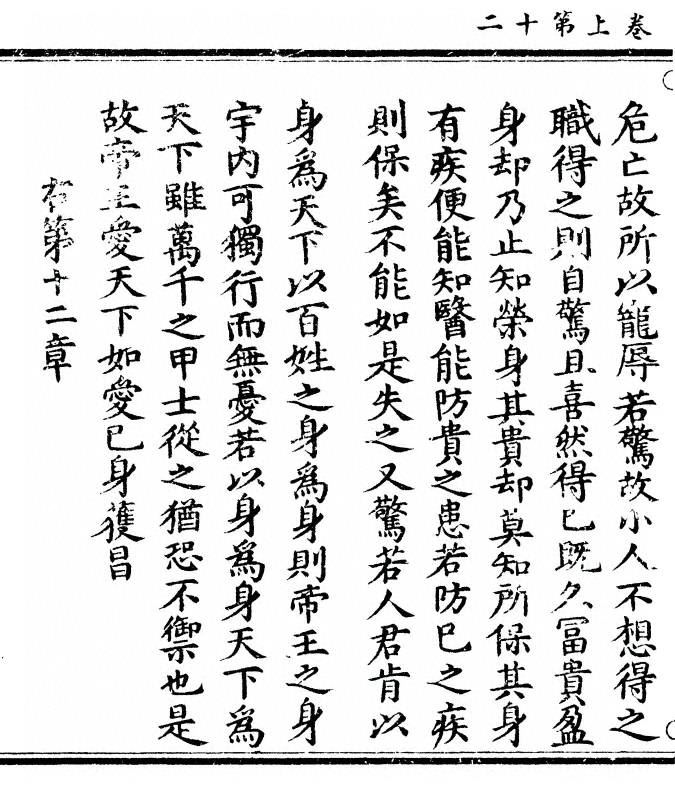 卷上第十二
危亡故所以寵辱若驚故小人不想得之
職得之則自驚且喜然得已既久冨貴盈
身却乃止知榮身其貴却莫知所保其身
有疾便能知醫能防貴之患若防已之疾
則保矣不能如是失之又驚若人君肯以
身為天下以百姓之身為身則帝王之身
宇内可獨行而無憂若以身為身天下為
天下雖萬千之甲士從之猶恐不禦也是
故帝王愛天下如愛已身獲昌
右第十二章